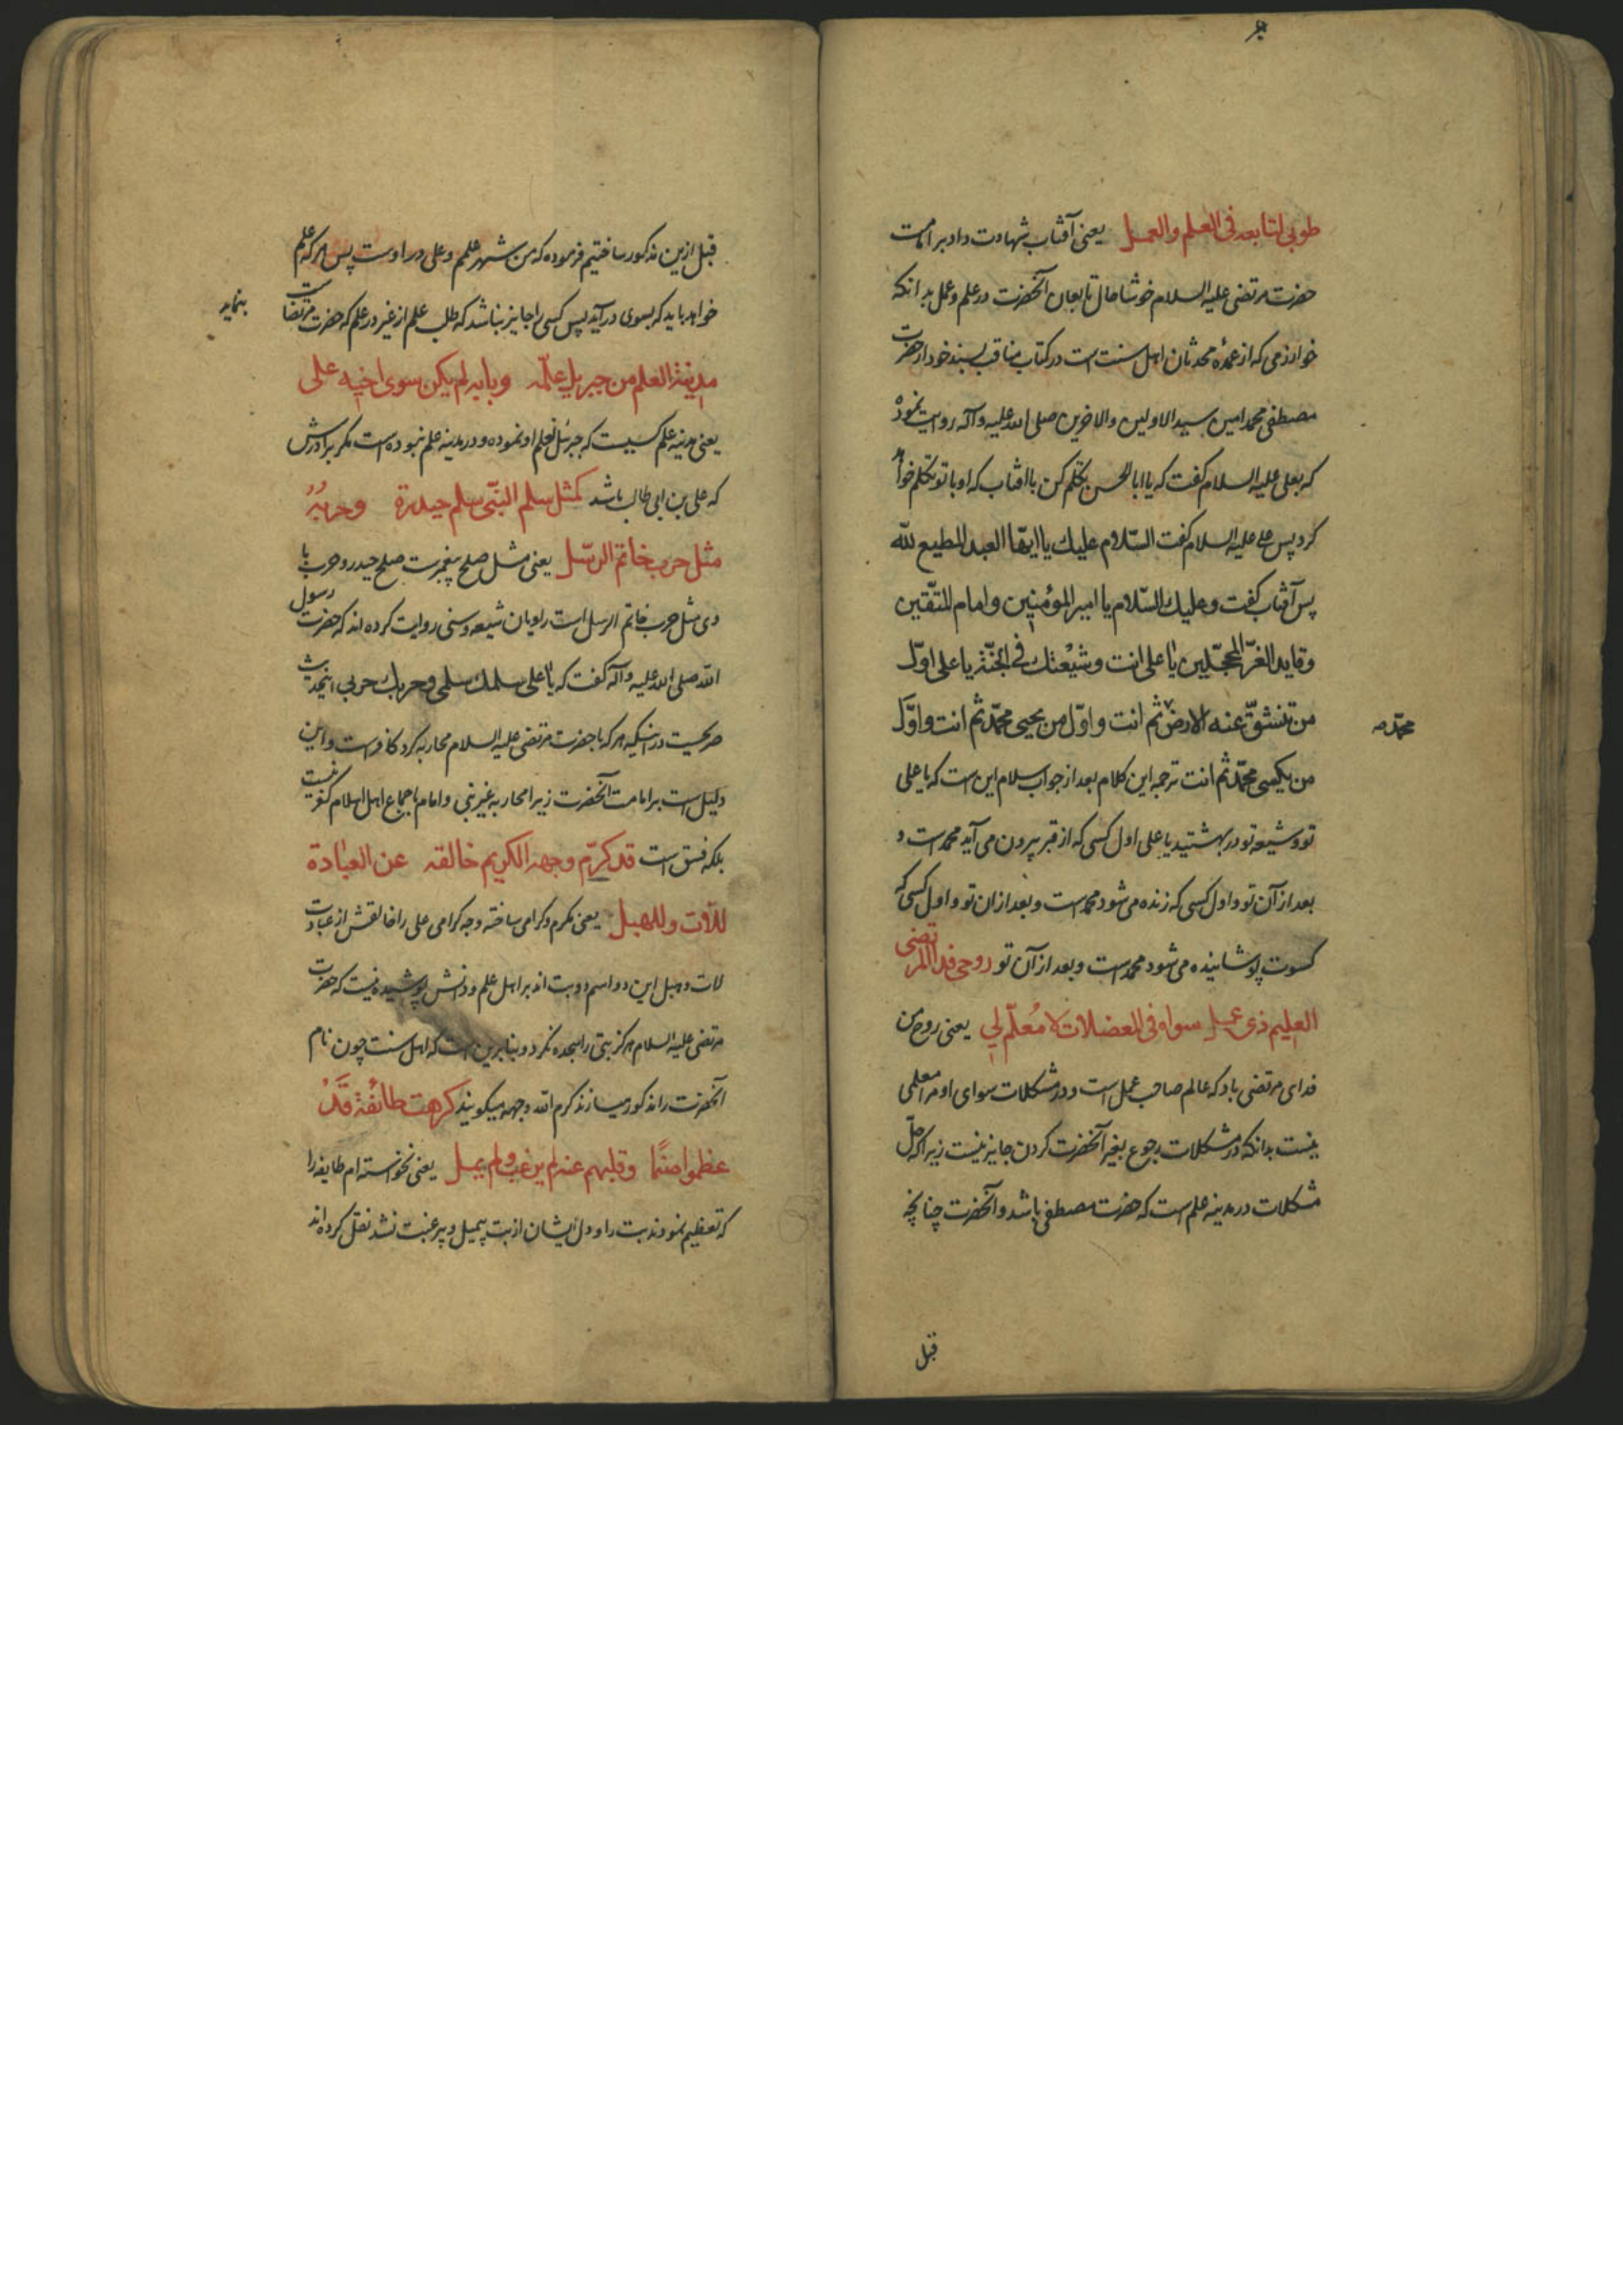 طوبی لتابعه فی العلم والعمل یعنی آفتاب شهادت داد بر امامت
حضرت مرتضی علیه السلام خوشا حال تابعان آنحضرت در علم و عمل بدانکه
خوارزمی که از عمدهٔ محدثان اهل سنت است در کتاب مناقب بسند خود از حضرت
مصطفی محمد امین سید الاولین والاخرین صلی الله علیه وآله روایت نموده
که بعلی علیه السلام گفت که یا ابا الحسن تکلم کن با افتاب که او با تو تکلم خواهد
کرد پس علی علیه السلام گفت السّلام علیك یا ایّها العبد المطیع لله
پس آفتاب گفت وعلیك السّلام یا امیر المؤمنین وامام المتّقین
وقاید الغرّ المحجّلین یا علی انت وشیعتك فی الجنّة یا علی اوّل
من تنشقّ عنه الارض ثم انت واوّل من یحیی محمّد ثم انت واوّل
محمّد صه
من یکسی محمّد ثم انت ترجمه این کلام بعد از جواب سلام این است که یا علی
تو و شیعه تو در بهشتید یا علی اول کسی که از قبر بیرون می آید محمد است و
بعد از آن تو و اول کسی که زنده می شود محمد است و بعد ازان تو و اول کسی که
کسوت پوشانیده می شود محمد است و بعد از آن تو روحی فدا المرتضی
العلیم ذی عمل سواه فی المعضلات لا معلّم لی یعنی روح من
فدای مرتضی باد که عالم صاحب عمل است و در مشکلات سوای او مرا معلمی
نیست بدانکه در مشکلات رجوع بغیر آنحضرت کردن جایز نیست زیرا که حلّ
مشکلات در مدینه علم است که حضرت مصطفی باشد و آنحضرت چنانچه
قبل
قبل ازین مذکور ساختیم فرموده که من شهر علمم و علی در اوست پس هر که علم
خواهد باید که بسوی در آید پس کسی را جایز نباشد که طلب علم از غیر در علم که حضرت مرتضا ست
بنماید
مدینة العلم من جبریل علّمه وبابه لم یکن سوی اخیه علی
یعنی مدینه علم کسیست که جبرئیل تعلم او نموده و در مدینه علم نبوده است مگر برادرش
که علی بن ابی طالب باشد کمثل سلم النبّی سلم حیدرة وحربُهُ
مثل حرب خاتم الرسل یعنی مثل صلح پیغمبرست صلح حیدر و حرب با
وی مثل حرب خاتم الرسل است راویان شیعه و سنی روایت کرده اند که حضرت رسول
الله صلی الله علیه وآله گفت که یا علی سلمك سلمی وحربك حربی اینحدیث
صریحست در اینکه هر که با حضرت مرتضی علیه السلام محاربه کرد کافر است و این
دلیل است بر امامت آنحضرت زیرا محاربه غیر نبی و امام باجماع اهل اسلام کفر نیست
بلکه فسق است قد کرّم وجهه الکریم خالقه عن العبادة
للّات وللهبل یعنی مکرم و کرامی ساخته وجه کرامی علی را خالقش از عبادت
لات و هبل این دو اسم دو بت اند بر اهل علم و دانش پوشیده نیست که حضرت
مرتضی علیه السلام هرگز بتی را سجده نکرد و بنابرین است که اهل سنت چون نام
آنحضرت را مذکور میسازند کرم الله وجهه میگویند کرهت طائفة قَدْ
عظموا صنمًا وقلبهم عنه لم یرغب ولم یمل یعنی نخواسته ام طایفه را
که تعظیم نمودند بت را و دل ایشان از بت بیمیل و بیرغبت نشد نقل کرده اند